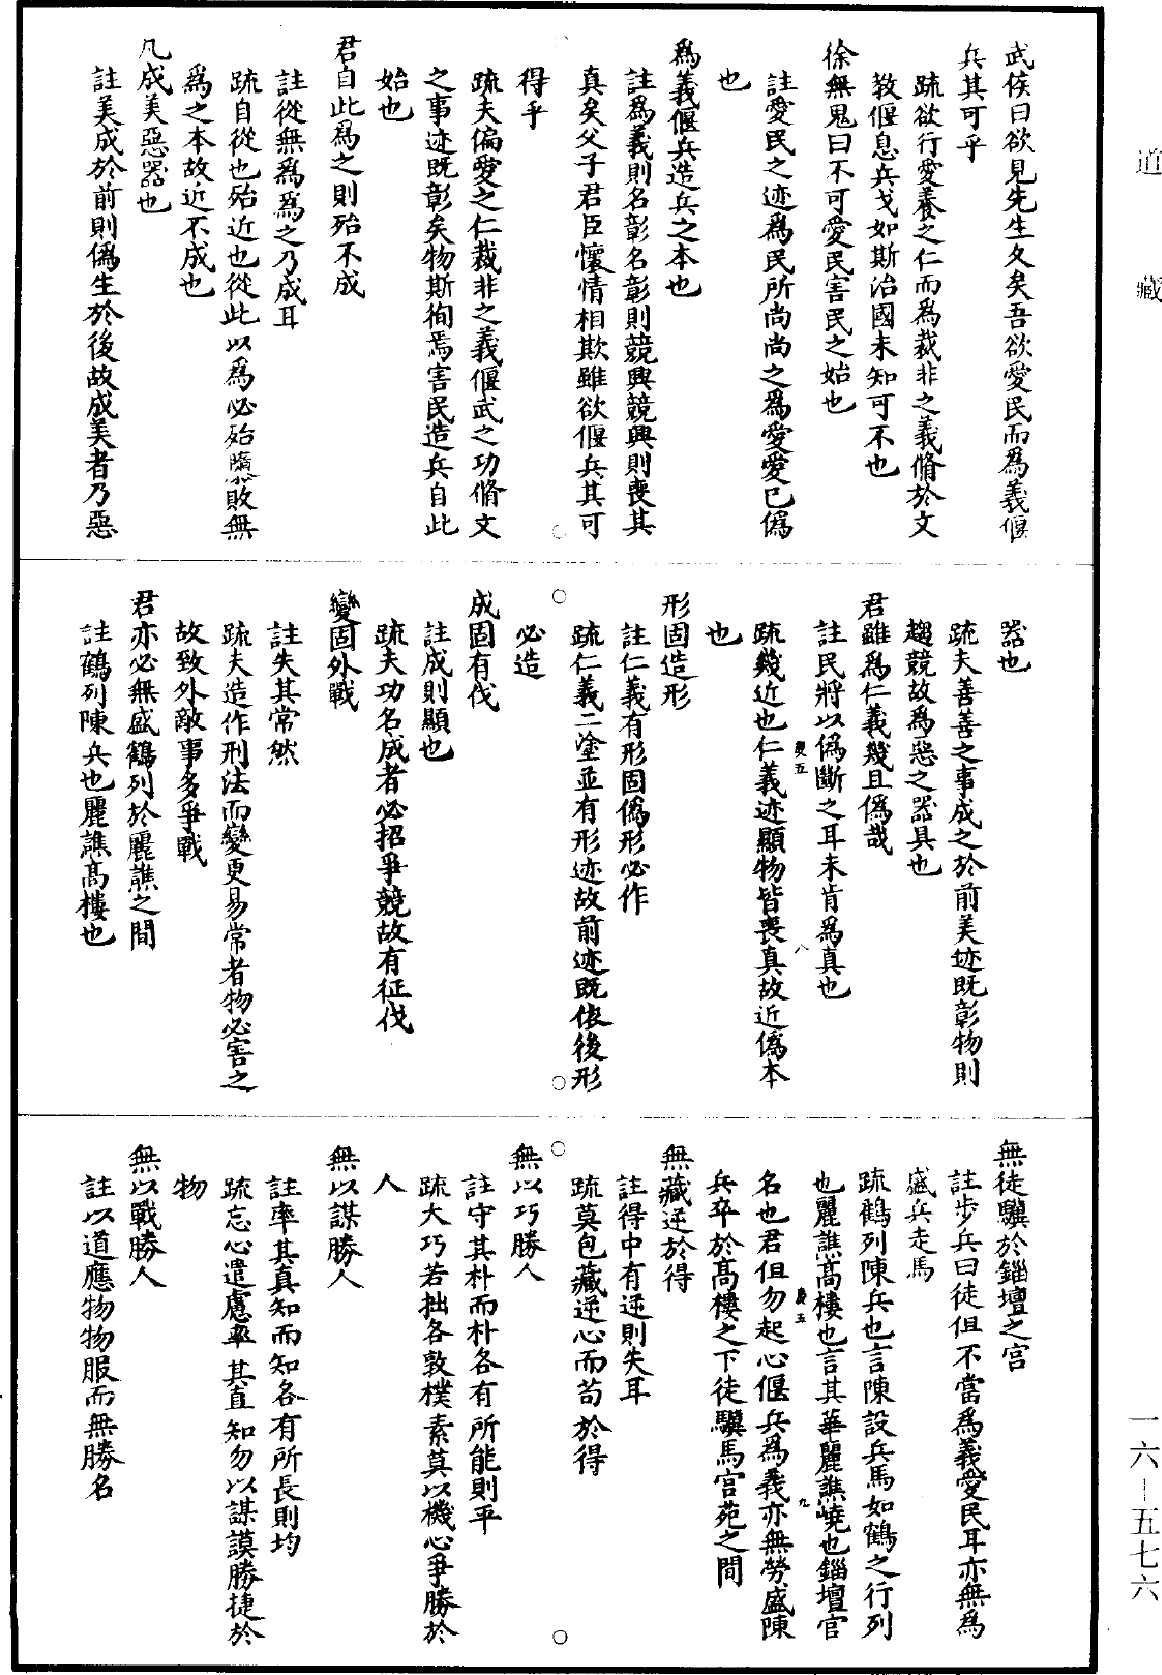 道藏
武侯曰欲見先生久矣吾欲愛民而為義偃
兵其可乎
疏欲行愛養之仁而為裁非之義脩於文
教偃息兵戈如斯治國未知可不也
徐無鬼曰不可愛民害民之始也
註愛民之迹為民所尚尚之為愛愛已偽
也
為義偃兵造兵之本也
註為義則名彰名彰則競興競興則喪其
真矣父子君臣懷情相欺雖欲偃兵其可
得乎
疏夫偏愛之仁裁非之義偃武之功脩文
之事迹既彰矣物斯徇焉害民造兵自此
始也
君自此為之則殆不成
註從無為為之乃成耳
疏自從也殆近也從此以為必殆隳敗無
為之本故近不成也
凡成美惡器也
註美成於前則偽生於後故成美者乃惡
器也
疏夫善善之事成之於前美迹既彰物則
趨競故為惡之器具也
君雖為仁義幾且偽哉
註民將以偽斷之耳未肯為真也
疏幾近也仁義迹顯物皆喪真故近偽本
也
形固造形
註仁義有形固偽形必作
疏仁義二塗並有形迹故前迹既依後形
必造
成固有伐
註成則顯也
疏夫功名成者必招爭競故有征伐
變固外戰
註失其常然
疏夫造作刑法而變更易常者物必害之
故致外敵事多爭戰
君亦必無盛鶴列於麗譙之間
註鶴列陳兵也麗譙高樓也
無徒驥於錙壇之宮
註步兵曰徒但不當為義愛民耳亦無為
盛兵走馬
疏鶴列陳兵也言陳設兵馬如鶴之行列
也麗譙高樓也言其華麗譙嶢也錙壇宮
名也君但勿起心偃兵為義亦無勞盛陳
兵卒於高樓之下徒驥馬宮苑之間
無藏逆於得
註得中有逆則失耳
疏莫包藏逆心而苟於得
無以巧勝人
註守其朴而朴各有所能則平
疏大巧若拙各敦樸素莫以機心爭勝於
人
無以謀勝人
註率其真知而知各有所長則均
疏忘心遣慮率其直知勿以謀謨勝捷於
物
無以戰勝人
註以道應物物服而無勝名
一六—五七六